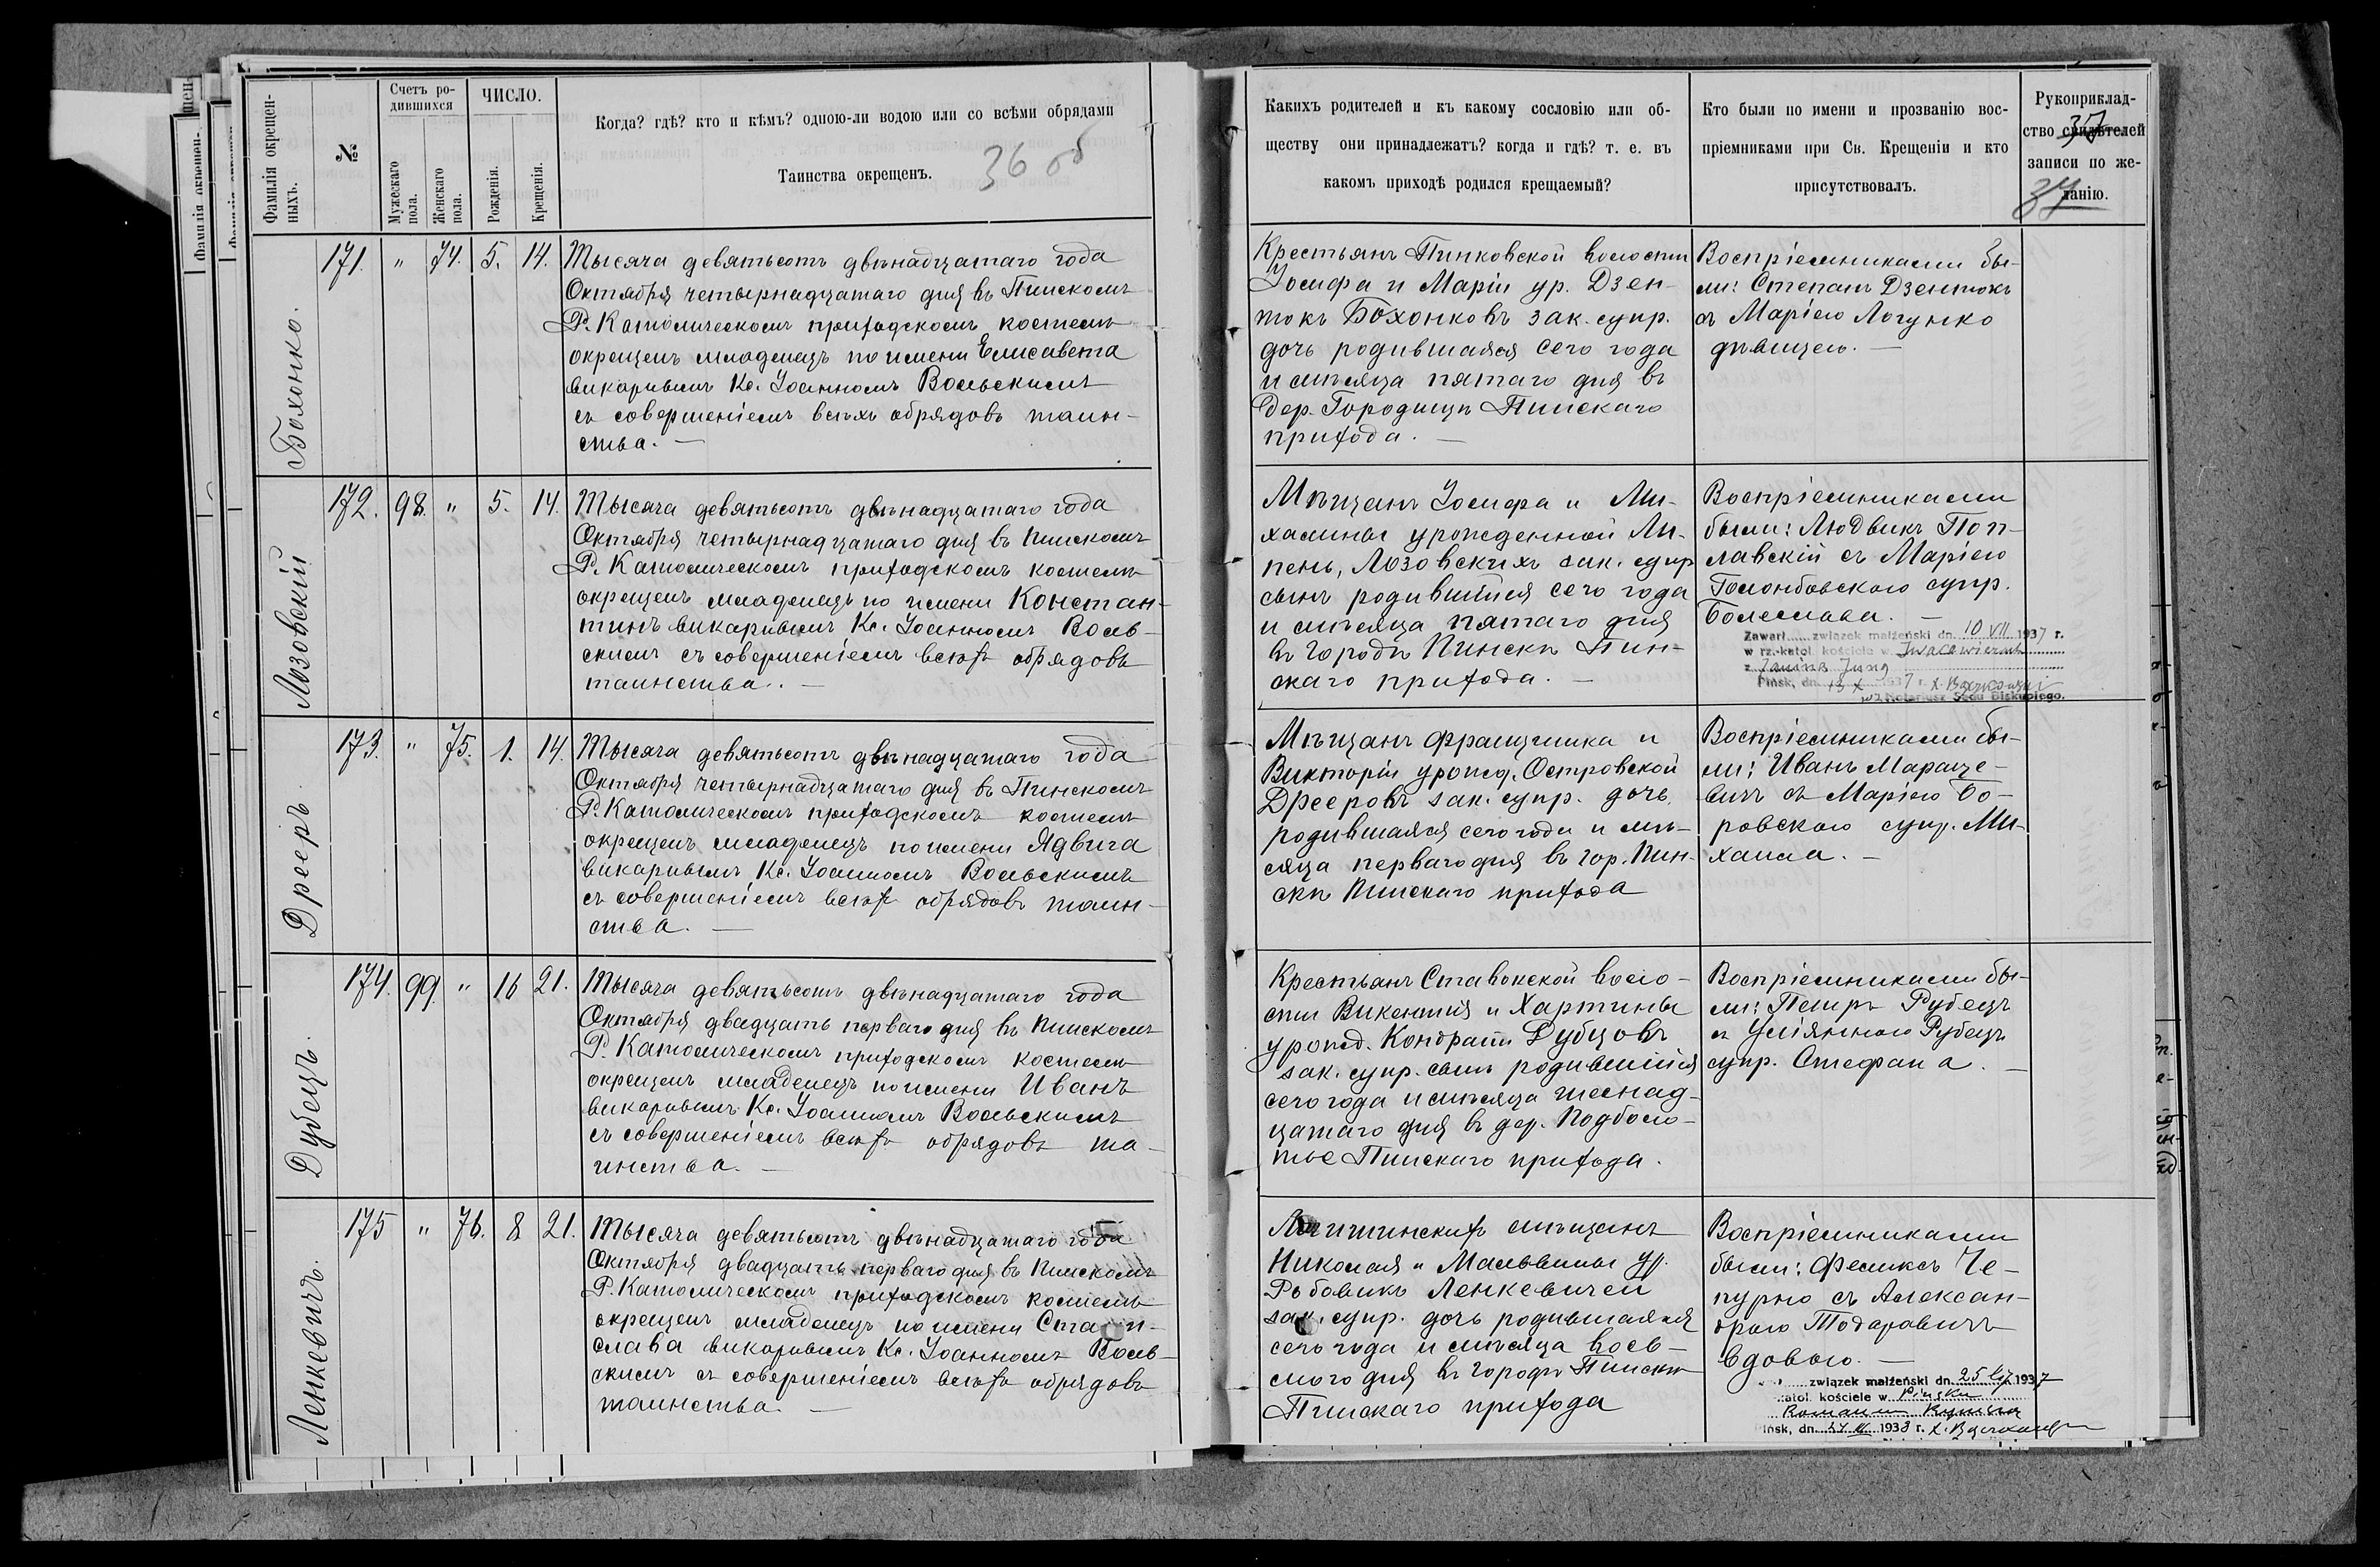 Фамилія окрещен-
ныхъ.
№
Счетъ ро-
дившихся
Мужескаго
пола.
Женскаго
пола.
ЧИСЛО.
Рожденія.
Крещенія.
Когда? гдѣ? кто и кѣмъ? одною-ли водою или со всѣми обрядами
Таинства окрещенъ.
36 об
Каких родителей и къ какому сословію или об-
ществу они принадлежатъ? когда и гдѣ? т. е. въ
какомъ приходѣ родился крещаемый?
Кто были по имени и прозванію вос-
пріемниками при Св. Крещеніи и кто
присутствовалъ.
Рукоприклад-
ство свидѣтелей
записи по же-
ланію.
37
37
Бохонко.
171. " 74. 5. 14.
Тысяча девятьсотъ двѣнадцатаго года
Октября четырнадцатаго дня въ Пинскомъ
Р. Католическомъ приходскомъ костелѣ
окрещенъ младенецъ по имени Елисавета
викарнымъ Кс. Іоанномъ Вольскимъ
съ совершеніемъ всѣхъ обрядовъ таин-
ства. —
Крестьянъ Пинковской волости
Іосифа и Маріи ур. Дзен-
токъ Бохонковъ зак. супр.
дочь родившаяся сего года
и мѣсяца пятаго дня въ
дер. Городищѣ Пинскаго
прихода. —
Воспріемниками бы-
ли: Степанъ Дзентокъ
съ Маріею Логунко
дѣвицею. —
Лозовскій
172. 98. " 5. 14.
Тысяча девятьсотъ двѣнадцатаго года
Октября четырнадцатаго дня въ Пинскомъ
Р. Католическомъ приходскомъ костелѣ
окрещенъ младенецъ по имени Констан-
тинъ викарнымъ Кс. Іоанномъ Воль-
скимъ съ совершеніемъ всѣхъ обрядовъ
таинства. —
Мѣщанъ Іосифа и Ми-
халины урожденной Ли-
пень, Лозовскихъ зак. супр
сынъ родившійся сего года
и мѣсяца пятаго дня
въ городѣ Пинскѣ Пин-
скаго прихода. —
Воспріемниками
были: Людвикъ Поп-
лавскій съ Маріею
Голомбовскою супр.
Болеслава. —
Zawarł...... związek małżeński dn. 10 VII 1937 r.
w rz.-katol. kościele w Iwacewiczach
z Janina Jung
Pińsk, dn. 13 X 1937 r. X. Baczkowski
wz Notariusz Sądu Biskupiego.
Дрееръ.
173. " 75. 1. 14.
Тысяча девятьсотъ двѣнадцатаго года
Октября четырнадцатаго дня въ Пинскомъ
Р. Католическомъ приходскомъ костелѣ
окрещенъ младенецъ по имени Ядвига
викарнымъ Кс. Іоанномъ Вольскимъ
съ совершеніемъ всѣхъ обрядовъ таин-
ства. —
Мѣщанъ Францишка и
Викторіи урожд. Островской
Дрееровъ зак. супр. дочь
родившаяся сего года и мѣ-
сяца перваго дня въ гор. Пин-
скѣ Пинскаго прихода
Воспріемниками бы-
ли: Иванъ Мараце-
вичъ съ Маріею Бо-
ровскою супр. Ми-
хаила. —
Дубецъ.
174. 99. " 16 21.
Тысяча девятьсотъ двѣнадцатаго года
Октября двадцать перваго дня въ Пинскомъ
Р. Католическомъ приходскомъ костелѣ
окрещенъ младенецъ по имени Иванъ
викарнымъ Кс. Іоанномъ Вольскимъ
съ совершеніемъ всѣхъ обрядовъ та-
инства. —
Крестьянъ Ставокской воло-
сти Викентія и Хартины
урожд. Кондрати Дубцовъ
зак. супр. сынъ родившійся
сего года и мѣсяца шеснад-
цатаго дня въ дер. Подболо-
тье Пинскаго прихода.
Воспріемниками бы-
ли: Петръ Рубецъ
съ Уліянною Рубецъ
супр. Стефана. —
Ленкевичъ.
175 " 76. 8 21.
Тысяча девятьсотъ двѣнадцатаго года
Октября двадцать перваго дня въ Пинскомъ
Р. Католическомъ приходскомъ костелѣ
окрещенъ младенецъ по имени Стани-
слава викарнымъ Кс. Іоанномъ Воль-
скимъ съ совершеніемъ всѣхъ обрядовъ
таинства. —
Логишинскихъ мѣщанъ
Николая и Мальвины ур.
Рабовикъ Ленкевичей
зак. супр. дочь родившаяся
сего года и мѣсяца вось-
мого дня въ городѣ Пинскѣ
Пинскаго прихода
Воспріемниками
были: Феликсъ Че-
пурно съ Алексан-
дрою Тодаровичъ
вдовою. —
związek małżeński dn. 25 1937
katol. kościele w Pińsku
Romanem
ińsk, dn. 1938 r. X. Baczkowski